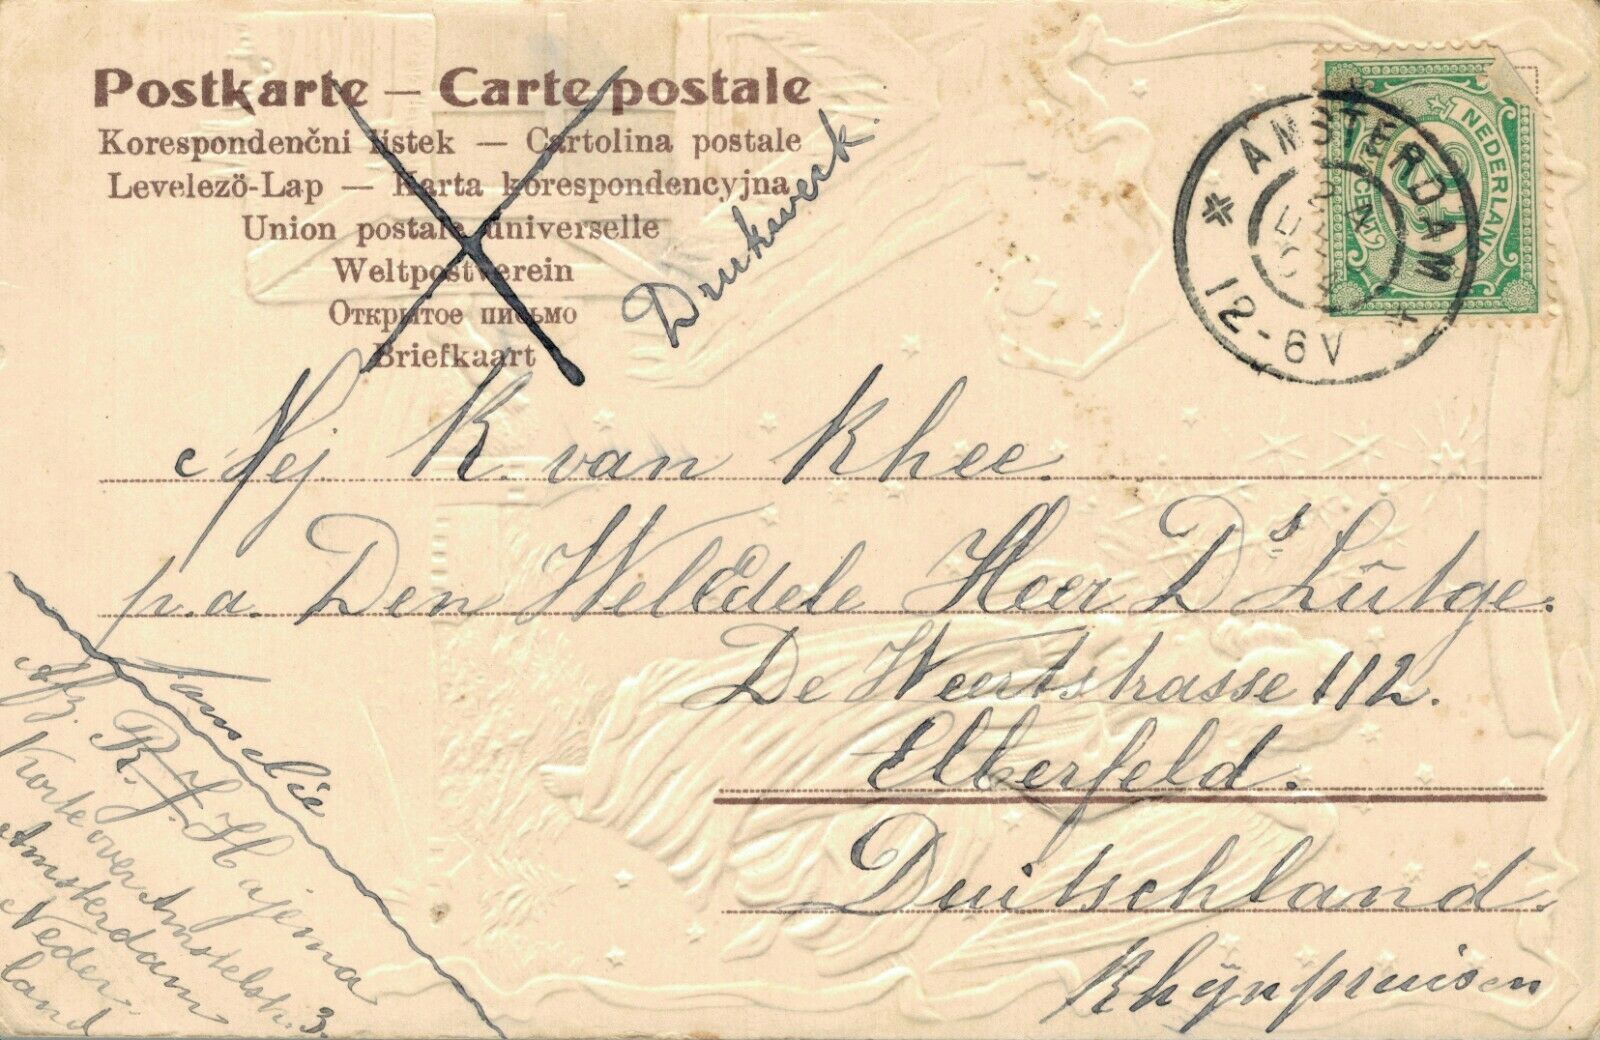 Postkarte – Carte postale
Korespondenčni listek — Cartolina postale
Levelezö-Lap — Karta korespondencyjna
Union postale universelle
Weltpostverein
Открытое письмо
Briefkaart
Drukwerk.
NEDERLAND
CENT
AMSTERDAM
12-6V
Mej. K. van Rhee.
p.a. Den WelEdele Heer Ds Lütge.
De Weertstrasse 112.
Elberfeld.
Duitschland.
Rhijnpruisen
Afz. Familie
R. J. Hajema
Korte over Amstelstr. 3.
Amsterdam
Neder-
land